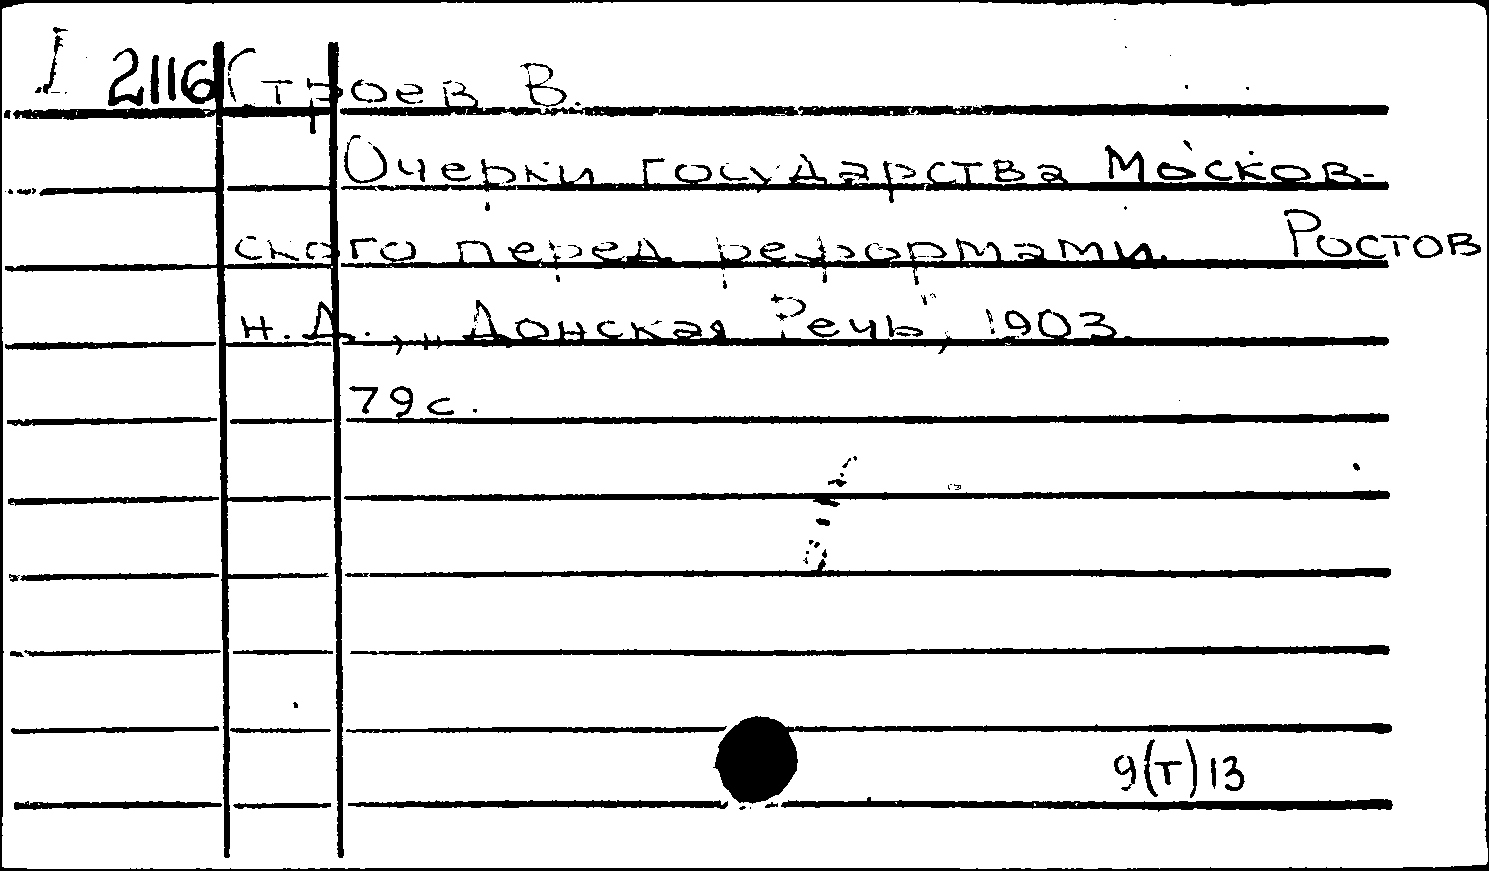 I 2116 Строев В.
Очерки государства Москов-
ского перед реформами. Ростов
н.Д., "Донская Речь", 1903
79с.
9(т)13